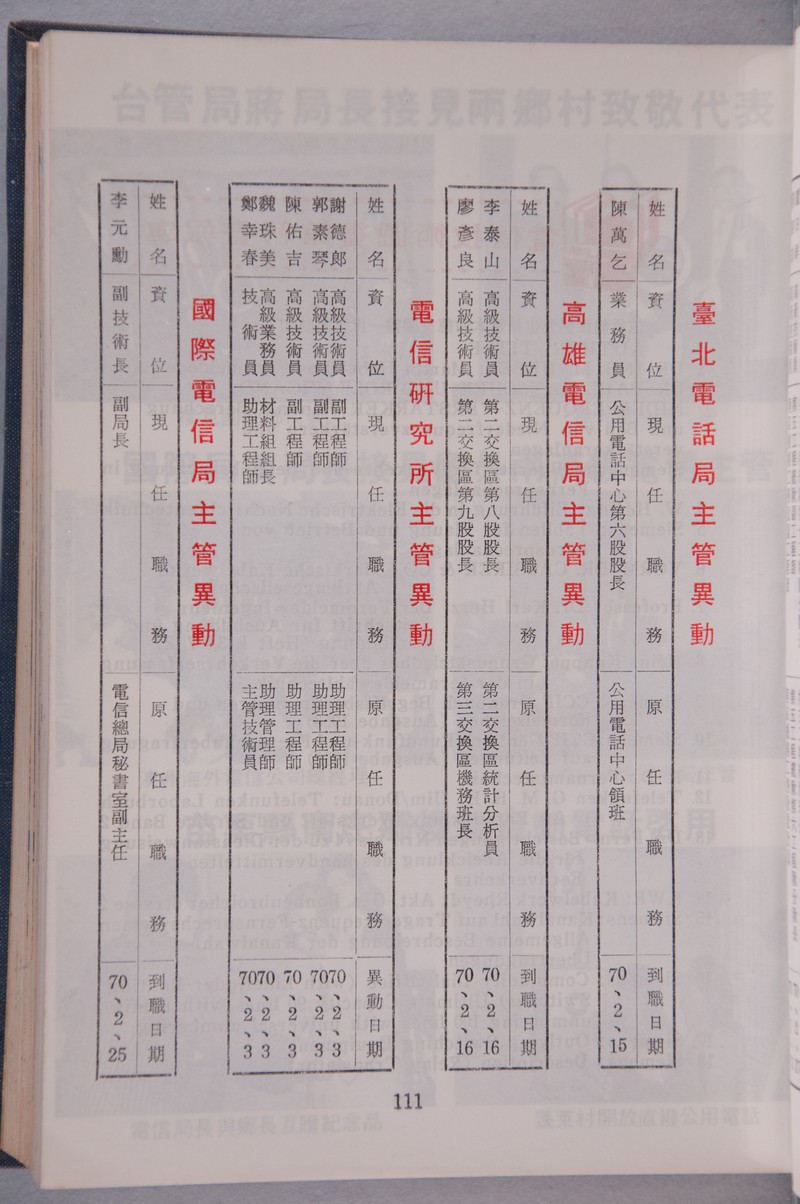 臺北電話局主管異動
姓名 資位 現任職務 原任職務 到職日期
陳萬乞 業務員 公用電話中心第六股股長 公用電話中心領班 70、2、15
高雄電信局主管異動
姓名 資位 現任職務 原任職務 到職日期
李泰山 高級技術員 第二交換區第八股股長 第二交換區統計分析員 70、2、16
廖彥良 高級技術員 第二交換區第九股股長 第三交換區機務班長 70、2、16
電信研究所主管異動
姓名 資位 現任職務 原任職務 異動日期
謝德郎 高級技術員 副工程師 助理工程師 70、2、3
郭素琴 高級技術員 副工程師 助理工程師 70、2、3
陳佑吉 高級技術員 副工程師 助理工程師 70、2、3
魏珠美 高級業務員 材料組組長 助理管理師 70、2、3
鄭幸春 技術員 助理工程師 主管技術員 70、2、3
國際電信局主管異動
姓名 資位 現任職務 原任職務 到職日期
李元勳 副技術長 副局長 電信總局秘書室副主任 70、2、25
111